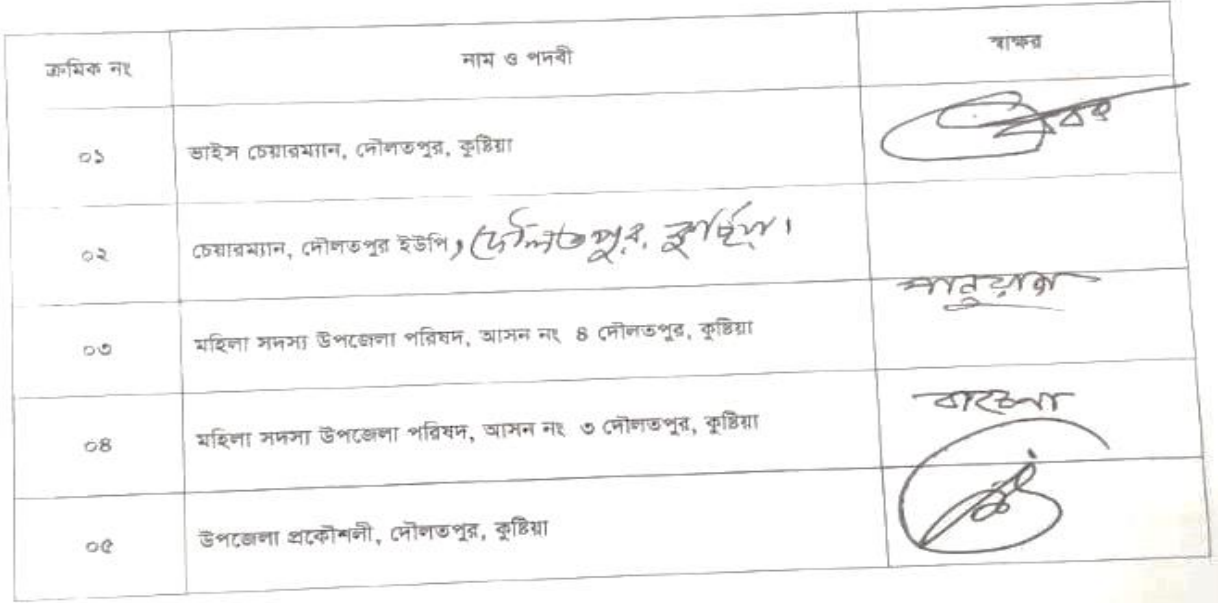 ক্রমিক নং নাম ও পদবী স্বাক্ষর
০১ ভাইস চেয়ারম্যান, দৌলতপুর, কুষ্টিয়া
০২ চেয়ারম্যান, দৌলতপুর ইউপি, দৌলতপুর, কুষ্টিয়া।
০৩ মহিলা সদস্য উপজেলা পরিষদ, আসন নং ৪ দৌলতপুর, কুষ্টিয়া
০৪ মহিলা সদস্য উপজেলা পরিষদ, আসন নং ৩ দৌলতপুর, কুষ্টিয়া
০৫ উপজেলা প্রকৌশলী, দৌলতপুর, কুষ্টিয়া